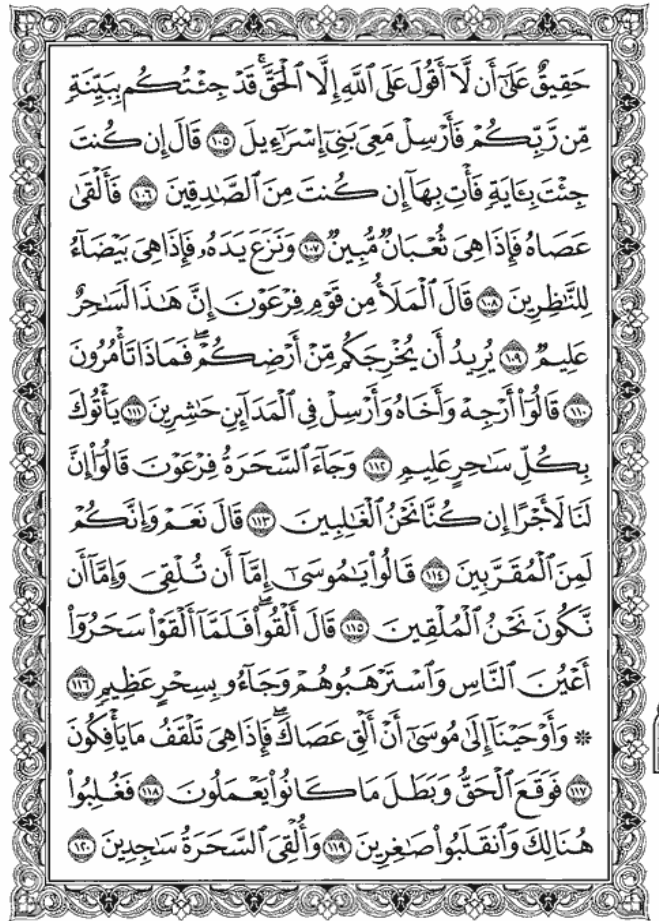 حَقِيقٌ عَلَىٰٓ أَن لَّآ أَقُولَ عَلَى ٱللَّهِ إِلَّا ٱلْحَقَّۚ قَدْ جِئْتُكُم بِبَيِّنَةٖ
مِّن رَّبِّكُمْ فَأَرْسِلْ مَعِىَ بَنِىٓ إِسْرَٰٓءِيلَ ١٠٥ قَالَ إِن كُنتَ
جِئْتَ بِـَٔايَةٖ فَأْتِ بِهَآ إِن كُنتَ مِنَ ٱلصَّٰدِقِينَ ١٠٦ فَأَلْقَىٰ
عَصَاهُ فَإِذَا هِىَ ثُعْبَانٞ مُّبِينٞ ١٠٧ وَنَزَعَ يَدَهُۥ فَإِذَا هِىَ بَيْضَآءُ
لِلنَّٰظِرِينَ ١٠٨ قَالَ ٱلْمَلَأُ مِن قَوْمِ فِرْعَوْنَ إِنَّ هَٰذَا لَسَٰحِرٌ
عَلِيمٞ ١٠٩ يُرِيدُ أَن يُخْرِجَكُم مِّنْ أَرْضِكُمْۖ فَمَاذَا تَأْمُرُونَ
١١٠ قَالُوٓا۟ أَرْجِهْ وَأَخَاهُ وَأَرْسِلْ فِى ٱلْمَدَآئِنِ حَٰشِرِينَ ١١١ يَأْتُوكَ
بِكُلِّ سَٰحِرٍ عَلِيمٖ ١١٢ وَجَآءَ ٱلسَّحَرَةُ فِرْعَوْنَ قَالُوٓا۟ إِنَّ
لَنَا لَأَجْرًا إِن كُنَّا نَحْنُ ٱلْغَٰلِبِينَ ١١٣ قَالَ نَعَمْ وَإِنَّكُمْ
لَمِنَ ٱلْمُقَرَّبِينَ ١١٤ قَالُوا۟ يَٰمُوسَىٰٓ إِمَّآ أَن تُلْقِىَ وَإِمَّآ أَن
نَّكُونَ نَحْنُ ٱلْمُلْقِينَ ١١٥ قَالَ أَلْقُوا۟ۖ فَلَمَّآ أَلْقَوْا۟ سَحَرُوٓا۟
أَعْيُنَ ٱلنَّاسِ وَٱسْتَرْهَبُوهُمْ وَجَآءُو بِسِحْرٍ عَظِيمٖ ١١٦
۞ وَأَوْحَيْنَآ إِلَىٰ مُوسَىٰٓ أَنْ أَلْقِ عَصَاكَۖ فَإِذَا هِىَ تَلْقَفُ مَا يَأْفِكُونَ
١١٧ فَوَقَعَ ٱلْحَقُّ وَبَطَلَ مَا كَانُوا۟ يَعْمَلُونَ ١١٨ فَغُلِبُوا۟
هُنَالِكَ وَٱنقَلَبُوا۟ صَٰغِرِينَ ١١٩ وَأُلْقِىَ ٱلسَّحَرَةُ سَٰجِدِينَ ١٢٠